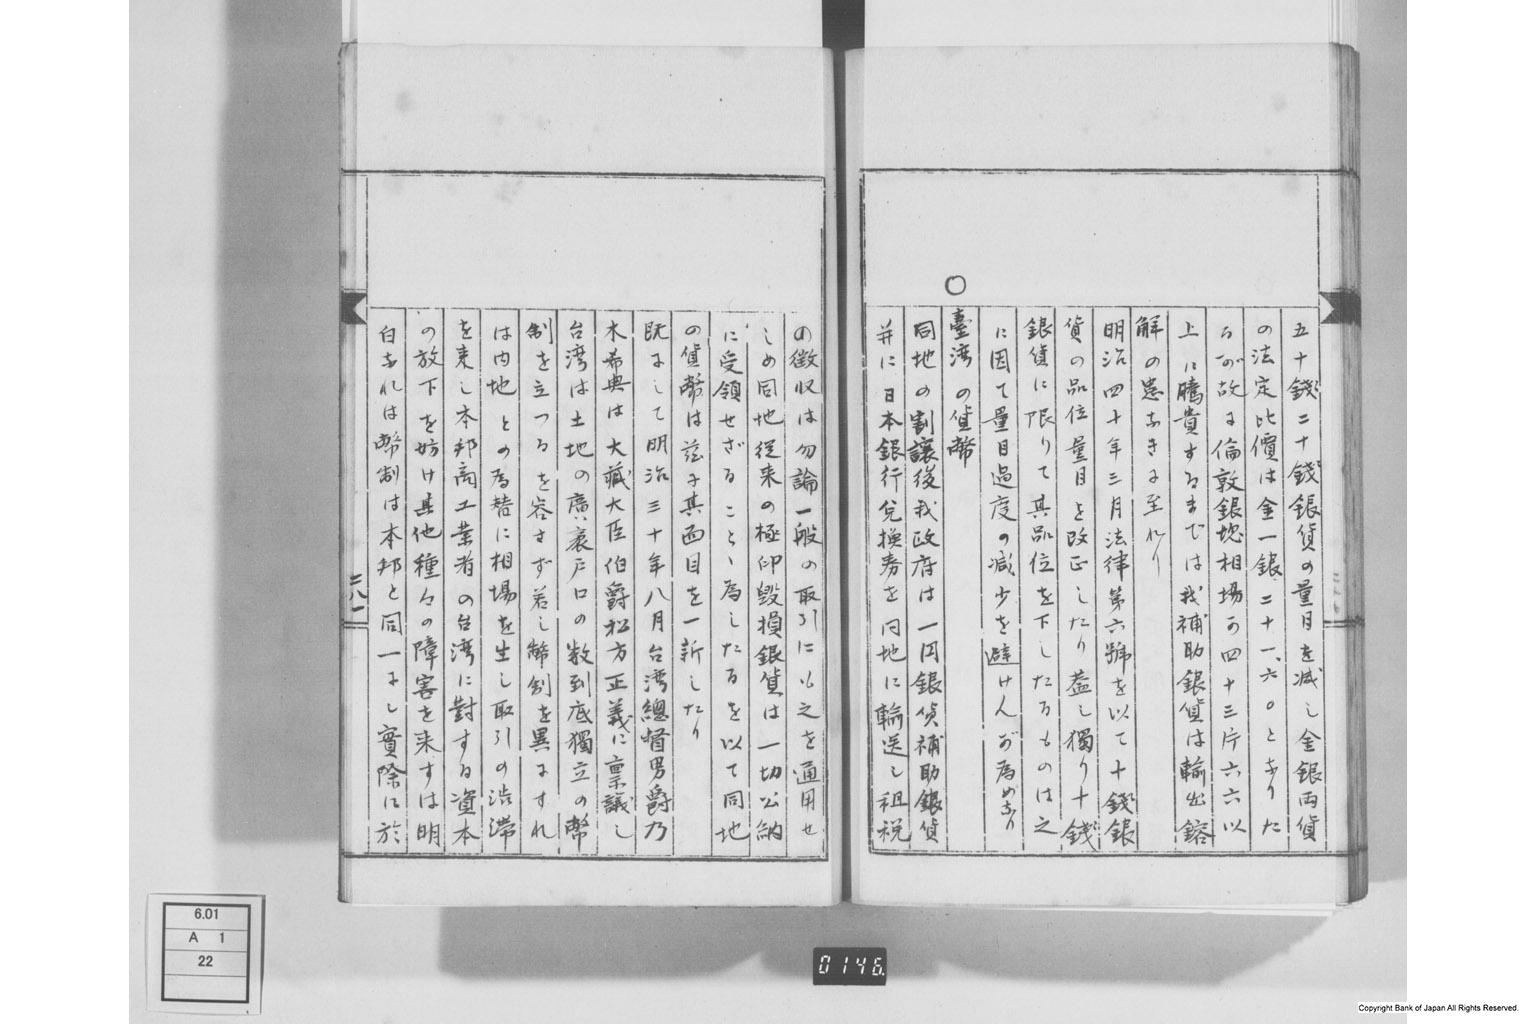 五十錢二十錢銀貨の量目を減し金銀両貨
の法定比價は金一銀二十一、六〇となりた
るが故に倫敦銀塊相場が四十三片六六以
上に騰貴するまでは我補助銀貨は輸出鎔
解の患なきに至れり
明治四十年三月法律第六號を以て十錢銀
貨の品位量目を改正したり蓋し獨り十錢
銀貨に限りて其品位を下したるものは之
に因て量目過度の減少を避けんが為めなり
〇
臺湾の貨幣
同地の割讓後我政府は一円銀貨補助銀貨
并に日本銀行兌換券を同地に輸送し租税
の徴収は勿論一般の取引にも之を通用せ
しめ同地従来の極印毀損銀貨は一切公納
に受領せざることゝ為したるを以て同地
の貨幣は茲に其面目を一新したり
既にして明治三十年八月台湾總督男爵乃
木希典は大藏大臣伯爵松方正義に禀議し
台湾は土地の廣袤戸口の数到底獨立の幣
制を立つるを容さず若し幣制を異にすれ
は内地との為替に相場を生し取引の渋滞
を来し本邦商工業者の台湾に對する資本
の放下を妨け其他種々の障害を来すは明
白なれは幣制は本邦と同一にし實際に於
二八一
6.01
A 1
22
0146
Copyright Bank of Japan All Rights Reserved.